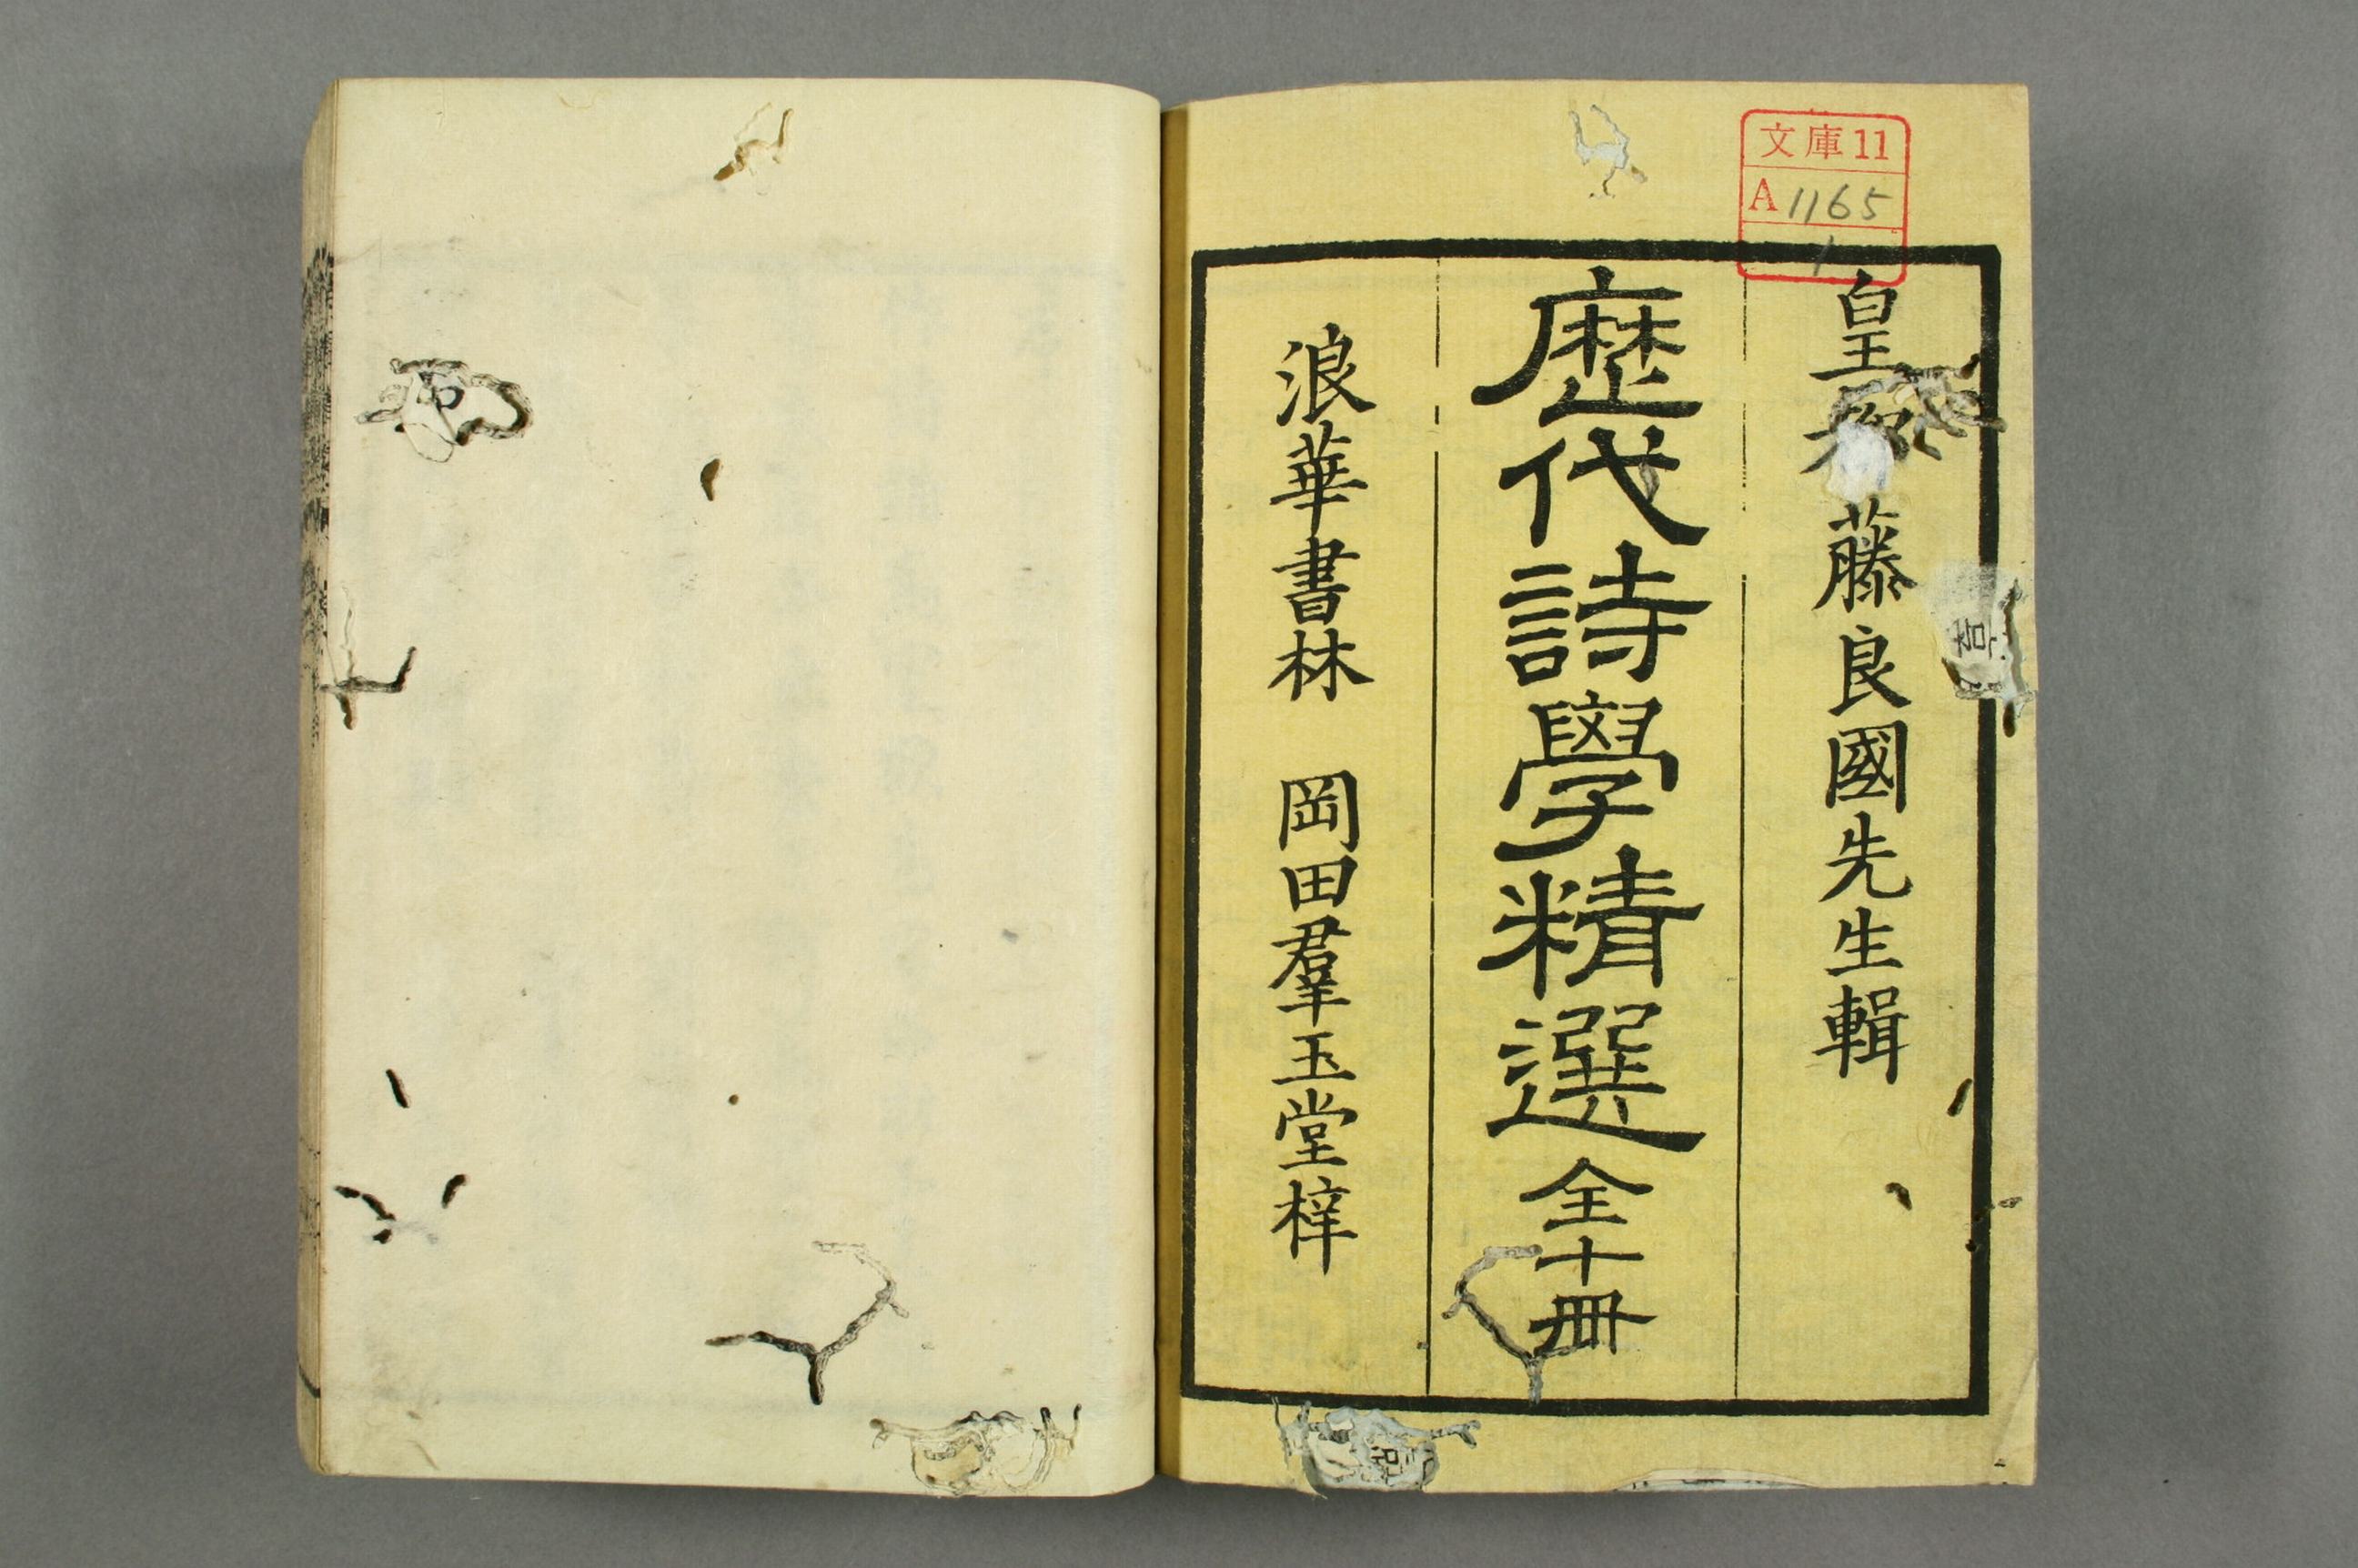 文庫11
A 1165
1
皇
藤良國先生輯
歴代詩學精選 全十冊
浪華書林 岡田羣玉堂梓